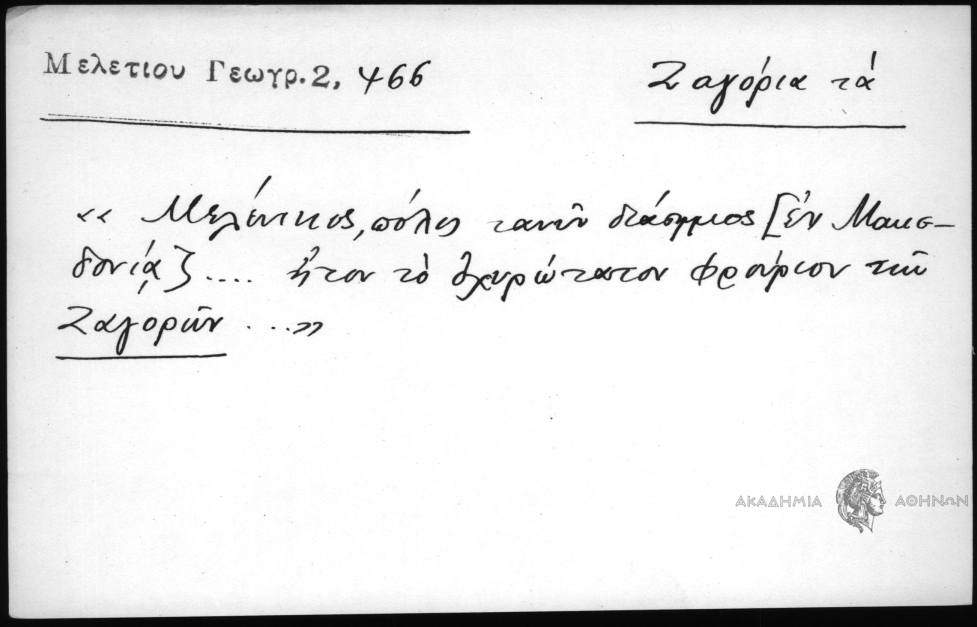 Μελετιου Γεωγρ.2, 466
Ζαγόρια τά
«Μελένικος, πόλις τανῦν διάσημος [ἐν Μακε-
δονίᾳ] .... ἦτον τὸ ὀχυρώτατον φρούριον τῶν
Ζαγορῶν ...»
ΑΚΑΔΗΜΙΑ ΑΘΗΝΩΝ